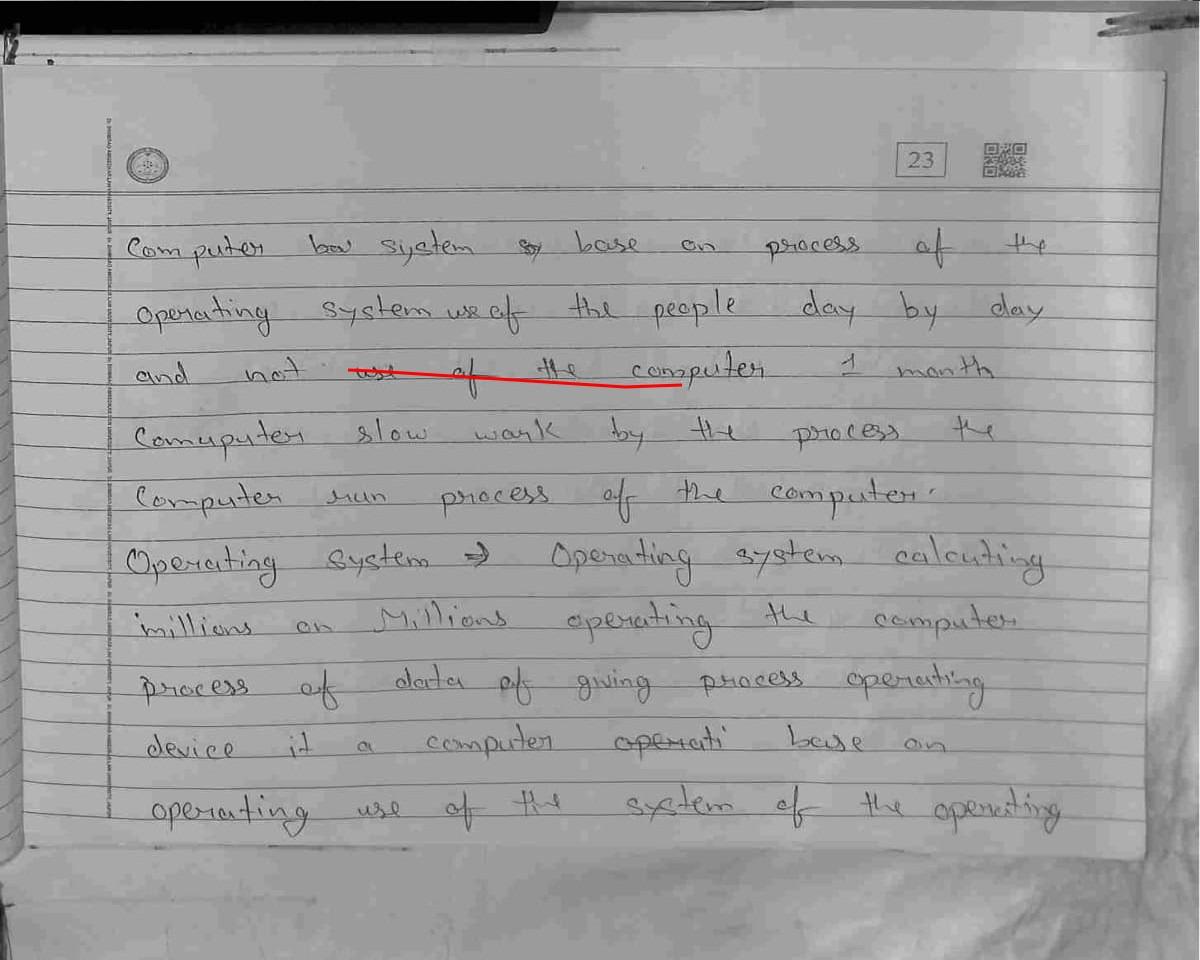 23
Computer bas system by base on process of the
operating system use of the people day by day
and not use of the computer 1 month
Comuputer slow work by the process the
Computer run process of the computer.
Operating system ⇒ Operating system calcuting
millions on Millions operating the computer
process of data of giving process operating
device it a computer operati base on
operating use of the system of the operating